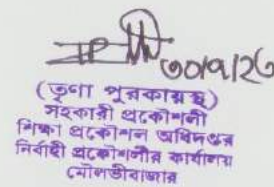 ৩০/৭/২৩
(তৃণা পুরকায়স্থ)
সহকারী প্রকৌশলী
শিক্ষা প্রকৌশল অধিদপ্তর
নির্বাহী প্রকৌশলীর কার্যালয়
মৌলভীবাজার